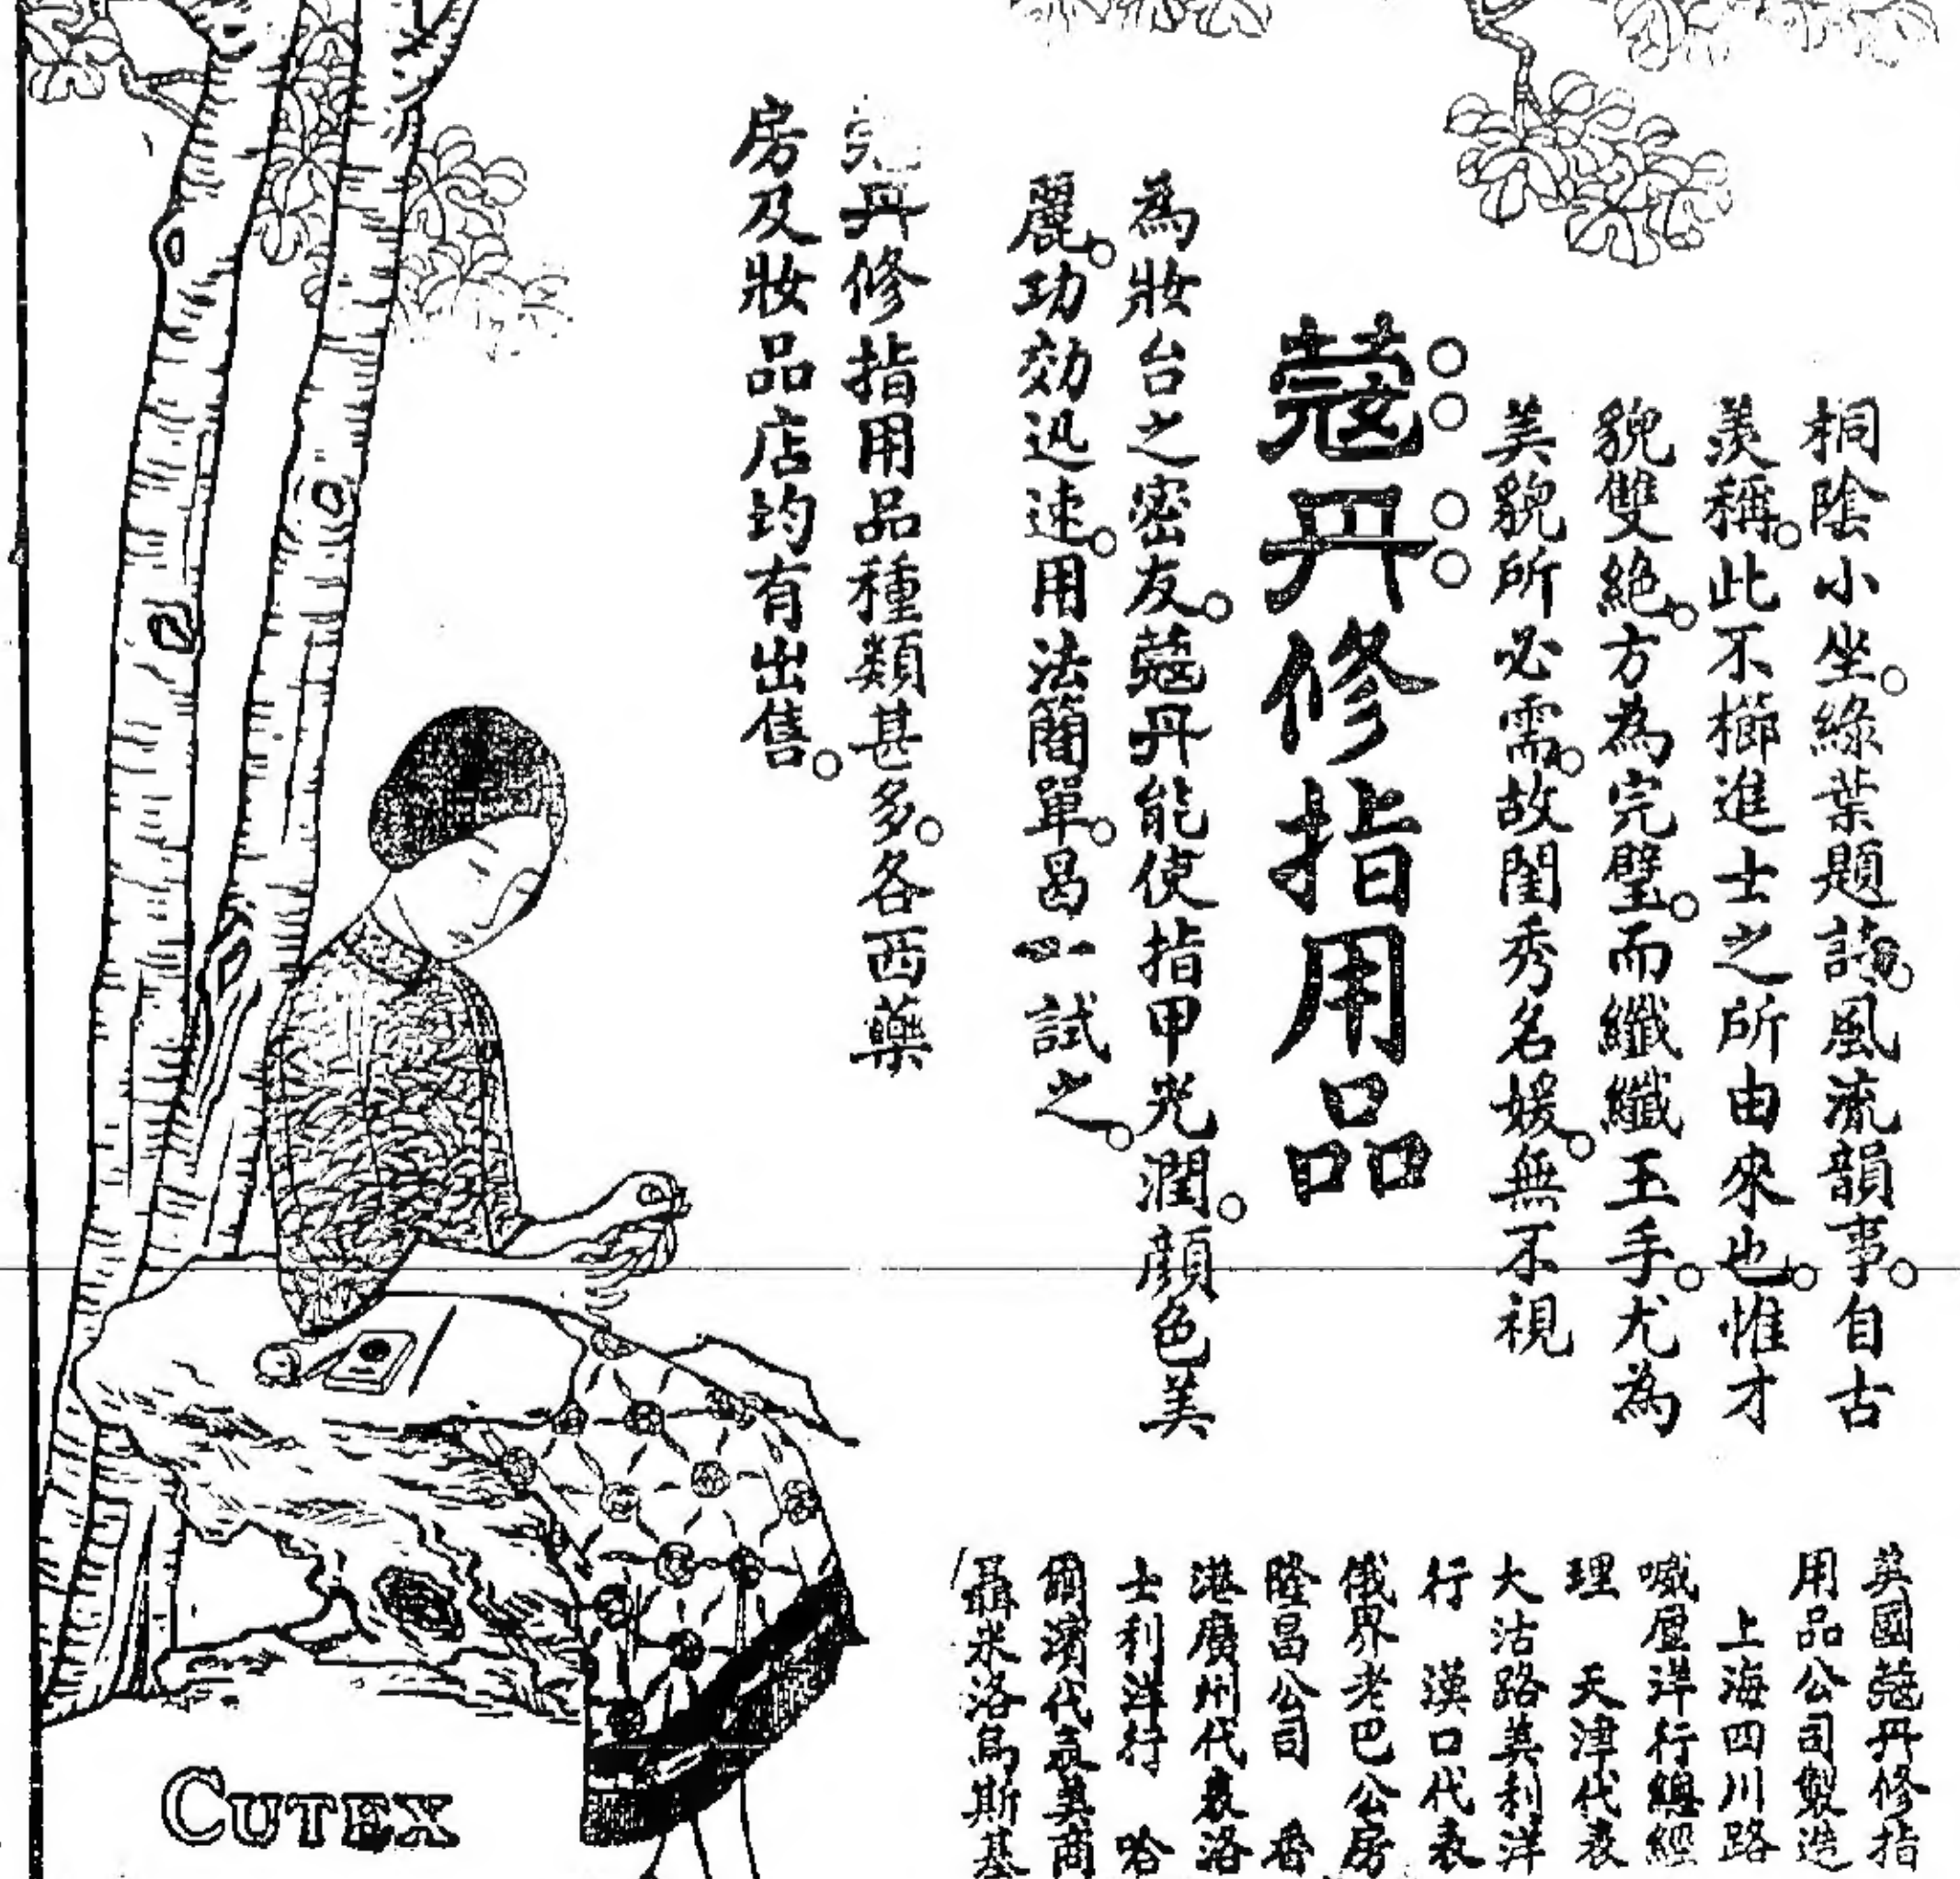 桐陰小坐。綠葉題詩。風流韻事。自古
羨稱。此不櫛進士之所由來也。惟才
貌雙絕。方為完璧。而纖纖玉手。尤為
美貌所必需。故閨秀名媛。無不視
蔻丹修指用品
為妝台之密友。蔻丹能使指甲光潤。顏色美
麗。功効迅速。用法簡單。曷一試之。
蔻丹修指用品種類甚多。各西藥
房及妝品店均有出售。
英國蔻丹修指
用品公司製造
上海四川路
喊厘洋行總經
理 天津代表
大沽路美利洋
行 漢口代表
俄界老巴公房
隆昌公司 香
港廣州代表洛
士利洋行 哈
爾濱代表美商
聶米洛烏斯基
CUTEX